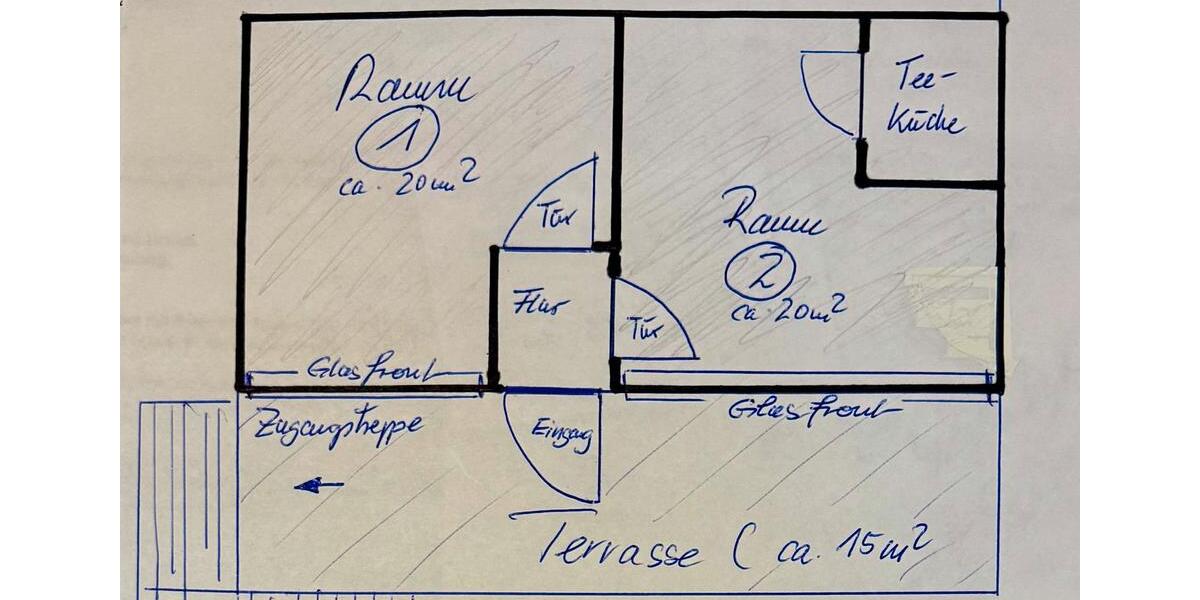 Raum
1
ca. 20m²
Tür
Flur
Glasfront
Tee-
Küche
Raum
2
ca. 20m²
Tür
Glasfront
Zugangstreppe
Eingang
Terrasse ( ca. 15m²